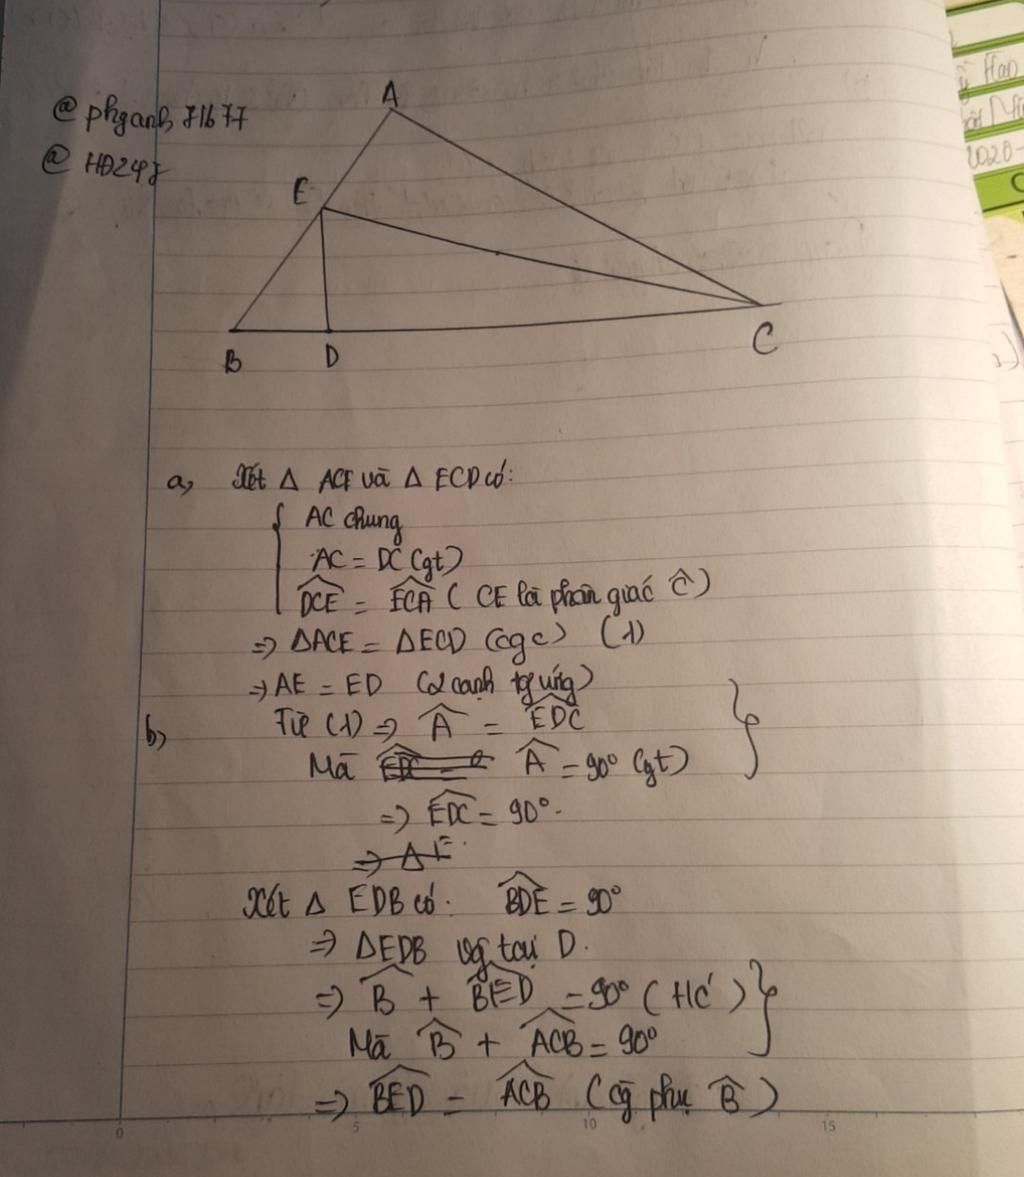 @ phganh71677
@ HĐ247
A
E
B
D
C
a, Xét Δ ACE và Δ ECD có:
AC chung
AC = DC (gt)
DCE = ECA ( CE là phân giác Ĉ )
=> ΔACE = ΔECD (cgc) (1)
=> AE = ED (2 cạnh tg ứng)
b, Từ (1) => Â = EDC
Mà Â = 90° (gt)
=> EDC = 90°.
=> ΔE
Xét Δ EDB có: BDE = 90°
=> ΔEDB vg tại D.
=> B̂ + BED = 90° ( HC )
Mà B̂ + ACB = 90°
=> BED = ACB (cg phụ B̂ )
0 5 10 15